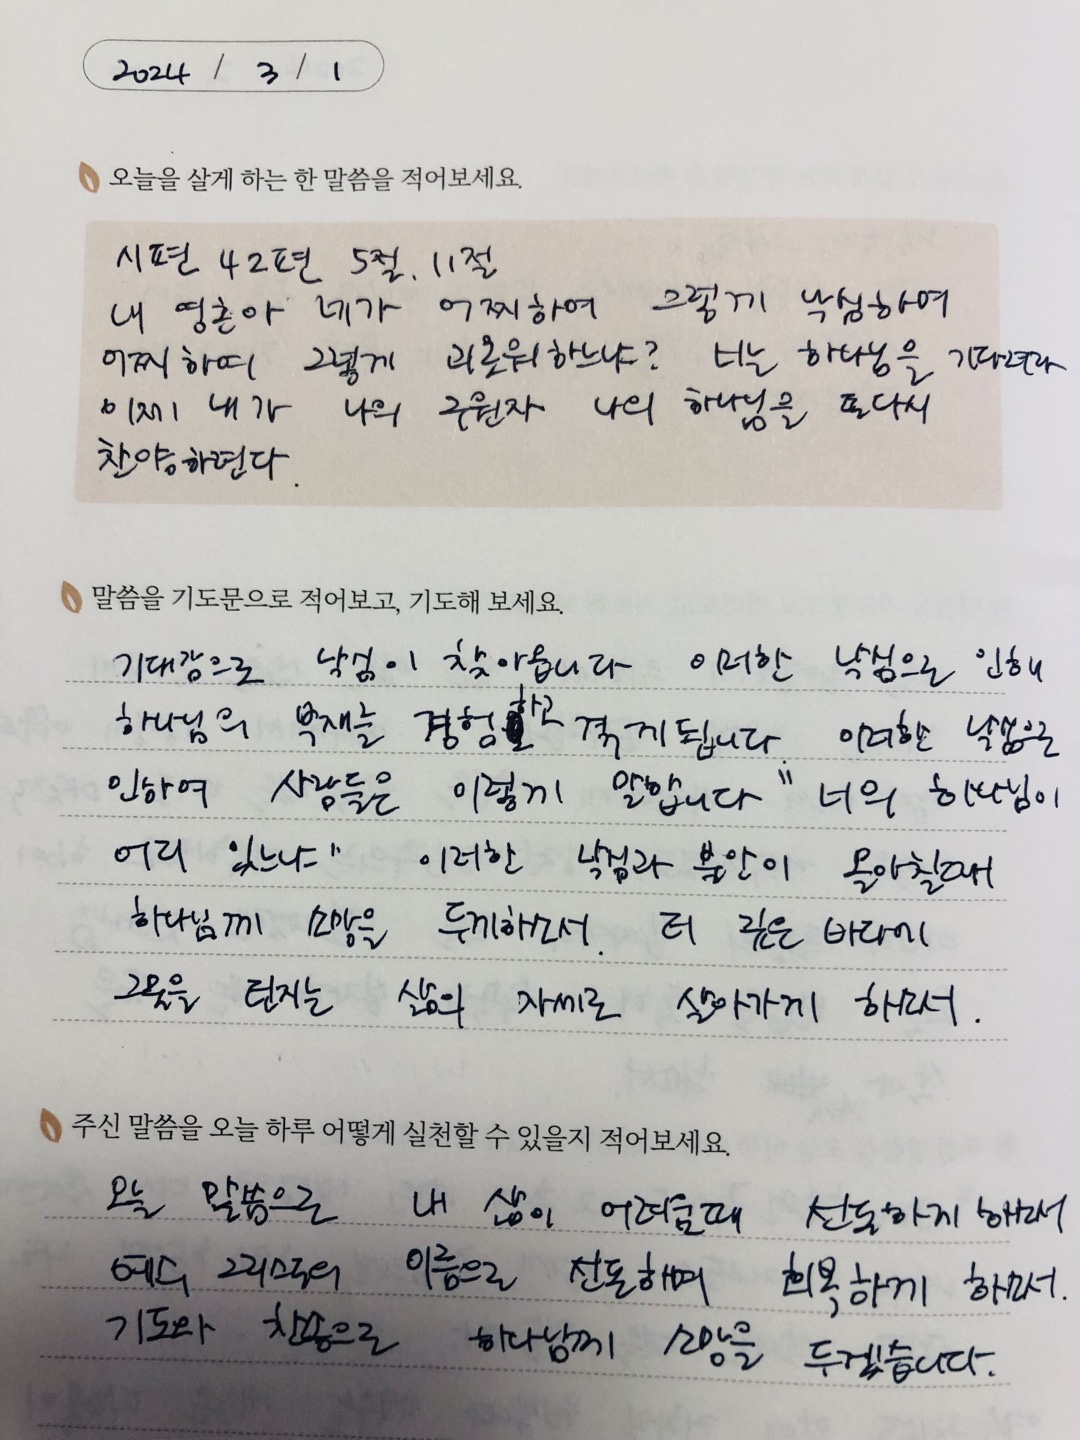 2024 / 3 / 1
오늘을 살게 하는 한 말씀을 적어보세요.
시편 42편 5절, 11절
내 영혼아 네가 어찌하여 그렇게 낙심하며
어찌하며 그렇게 괴로워하느냐? 너는 하나님을 기다려라
이제 내가 나의 구원자 나의 하나님을 또다시
찬양하련다.
말씀을 기도문으로 적어보고, 기도해 보세요.
기대감으로 낙심이 찾아옵니다 이러한 낙심으로 인해
하나님의 부재를 경험하고 겪게됩니다. 이러한 낙심으로
인하여 사람들은 이렇게 말합니다 "너의 하나님이
어디 있느냐" 이러한 낙심과 불안이 몰아칠때
하나님께 소망을 두게하소서. 더 깊은 바다에
그물을 던지는 삶의 자세로 살아가게 하소서.
주신 말씀을 오늘 하루 어떻게 실천할 수 있을지 적어보세요.
오늘 말씀으로 내 삶이 어려울때 선포하게 하소서
예수 그리스도의 이름으로 선포하며 회복하게 하소서.
기도와 찬송으로 하나님께 소망을 두겠습니다.